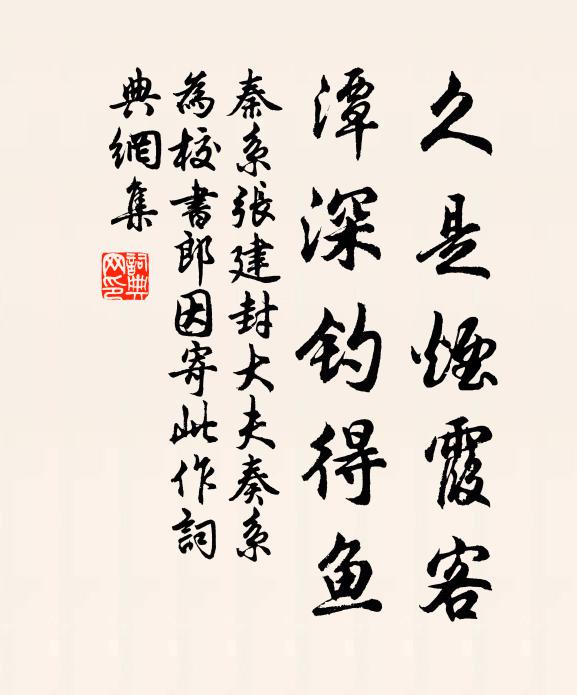 久是煙霞客
潭深釣得魚
秦系張建封大夫奏系
為校書郎因寄此作詞
典網集
詞典
网印